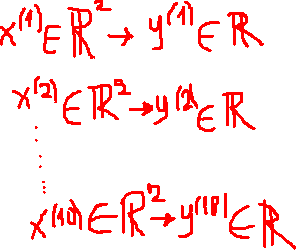 x^(1) ∈ ℝ^2 → y^(1) ∈ ℝ
x^(2) ∈ ℝ^2 → y^(2) ∈ ℝ
⋮
x^(10) ∈ ℝ^2 → y^(10) ∈ ℝ